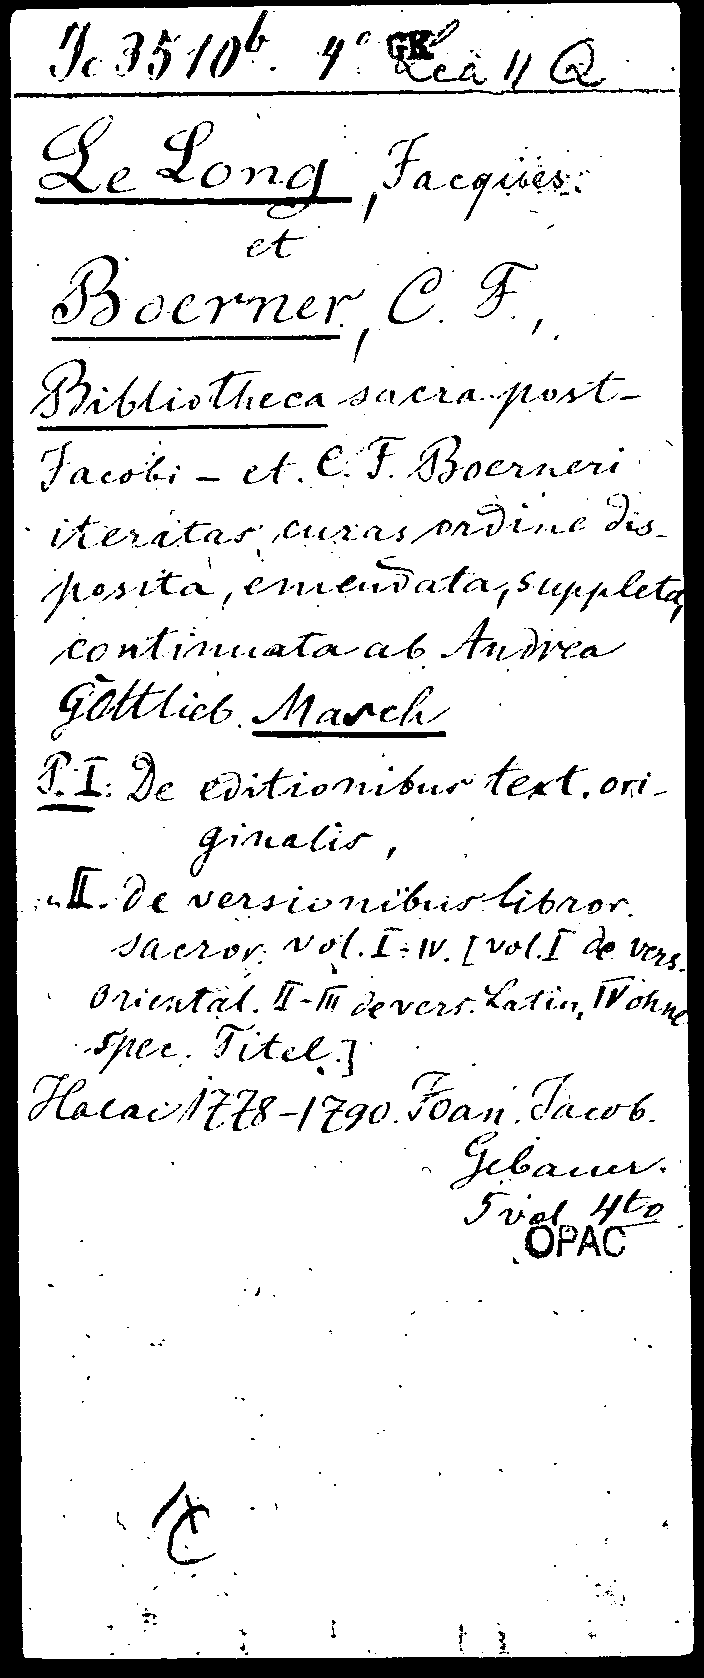 Jc 3510b. 4° GK Lea 11 Q
Le Long, Jacques.
et
Boerner, C. F.,
Bibliotheca sacra post
Jacobi – et. C. F. Boerneri
iteratas curas ordine dis-
posita, emendata, suppleta,
continuata ab Andrea
Gottlieb Masch
P. I: De editionibus text. ori-
ginalis,
„ II. de versionibus libror.
sacror. vol. I-IV. [vol. I de vers.
oriental. II-III de vers. Latin, IV ohne
spec. Titel.]
Halae 1778-1790. Joan. Jacob.
Gebauer.
5 vol 4to
OPAC